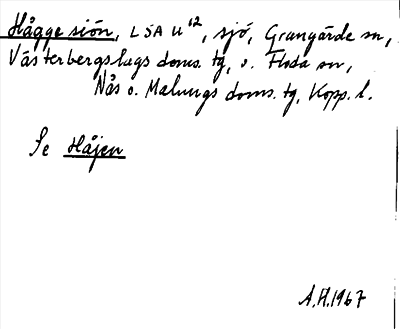 Hågge siön, LSA U¹², sjö, Grangärde sn,
Västerbergslags doms. tg, o. Floda sn,
Nås o. Malungs doms. tg, Kopp. l.
Se Håjen
A.H. 1967